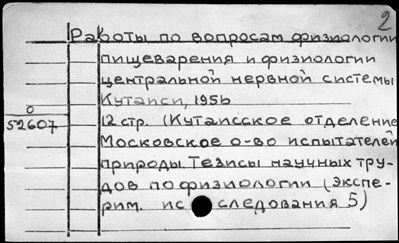 2
Работы по вопросам физиологии
пищеварения и физиологии
центральной нервной системы
Кутаиси, 1956
0
52607
12 стр. (Кутаисское отделение
Московское о-во испытателей
природы. Тезисы научных тру-
дов по физиологии (экспе-
рим. ис следования 5)